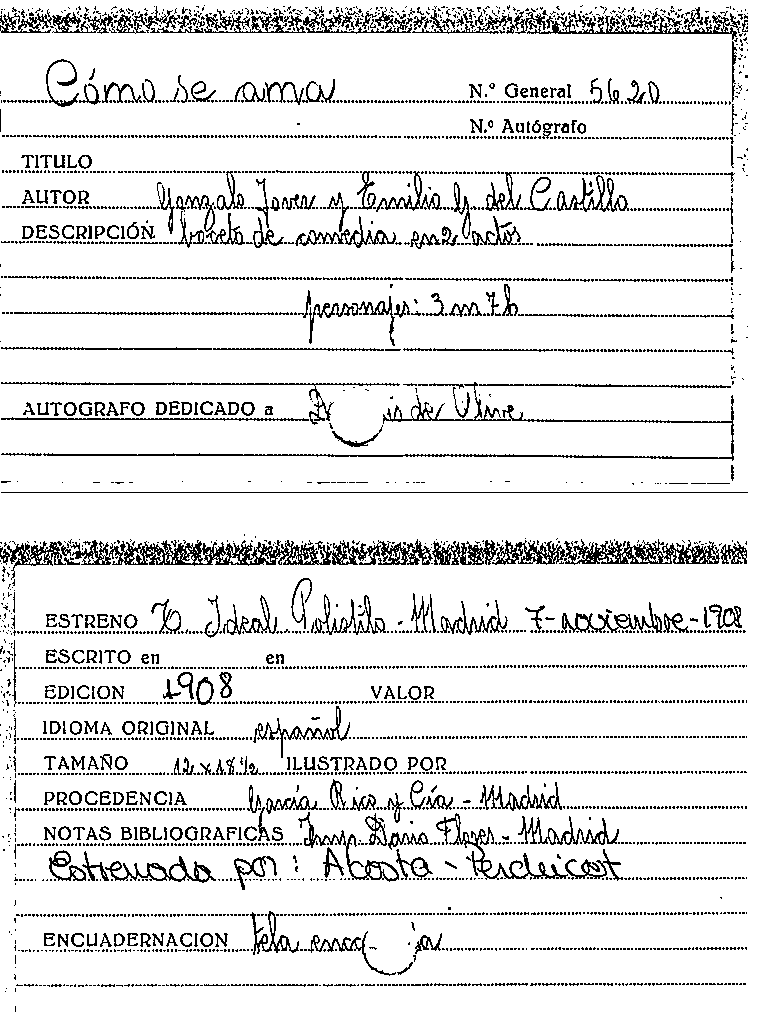 Cómo se ama N.º General 5620
N.º Autógrafo
TITULO
AUTOR Gonzalo Jover y Emilio G. del Castillo
DESCRIPCIÓN boceto de comedia en 2 actos
personajes: 3 m 7 h
AUTOGRAFO DEDICADO a de Olive
ESTRENO Ideal Polistilo - Madrid 7-noviembre-1908
ESCRITO en en
EDICION 1908 VALOR
IDIOMA ORIGINAL español
TAMAÑO 12 x 18 ½ ILUSTRADO POR
PROCEDENCIA García Rico y Cía - Madrid
NOTAS BIBLIOGRAFICAS Imp. Flores - Madrid
Estrenada por: Acosta -
ENCUADERNACION tela